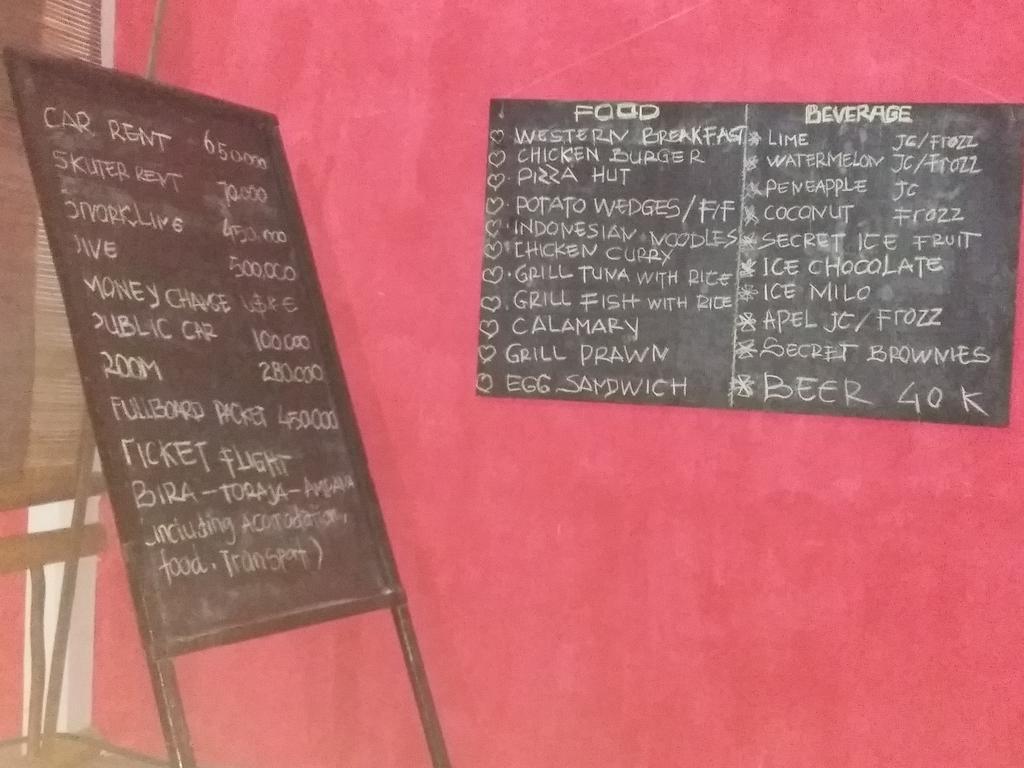 CAR RENT 650.000
SKUTER RENT 70.000
SNORKLING 450.000
DIVE 500.000
MONEY CHANGE U$RE
PUBLIC CAR 100.000
ROOM 280.000
FULLBOARD PACKET 450.000
TICKET FLIGHT
BIRA - TORAJA -
(including
food. Transport)
FOOD
WESTERN BREAKFAST
CHICKEN BURGER
PIZZA HUT
POTATO WEDGES/F/F
INDONESIAN NOODLES
CHICKEN CURRY
GRILL TUNA WITH RICE
GRILL FISH WITH RICE
CALAMARY
GRILL PRAWN
EGG SANDWICH
BEVERAGE
LIME JC/FROZZ
WATERMELON JC/FROZZ
PENEAPPLE JC
COCONUT FROZZ
SECRET ICE FRUIT
ICE CHOCOLATE
ICE MILO
APEL JC/FROZZ
SECRET BROWNIES
BEER 40 K